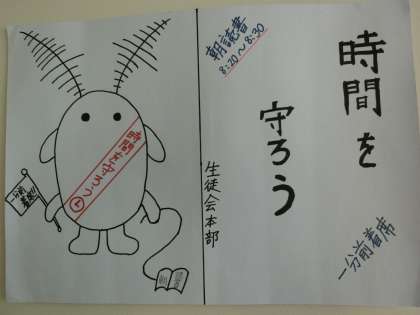 時間を
守ろう
朝読書
8:20〜8:30
一分前着席
生徒会本部
時間を守ろう
一分前
着席!!